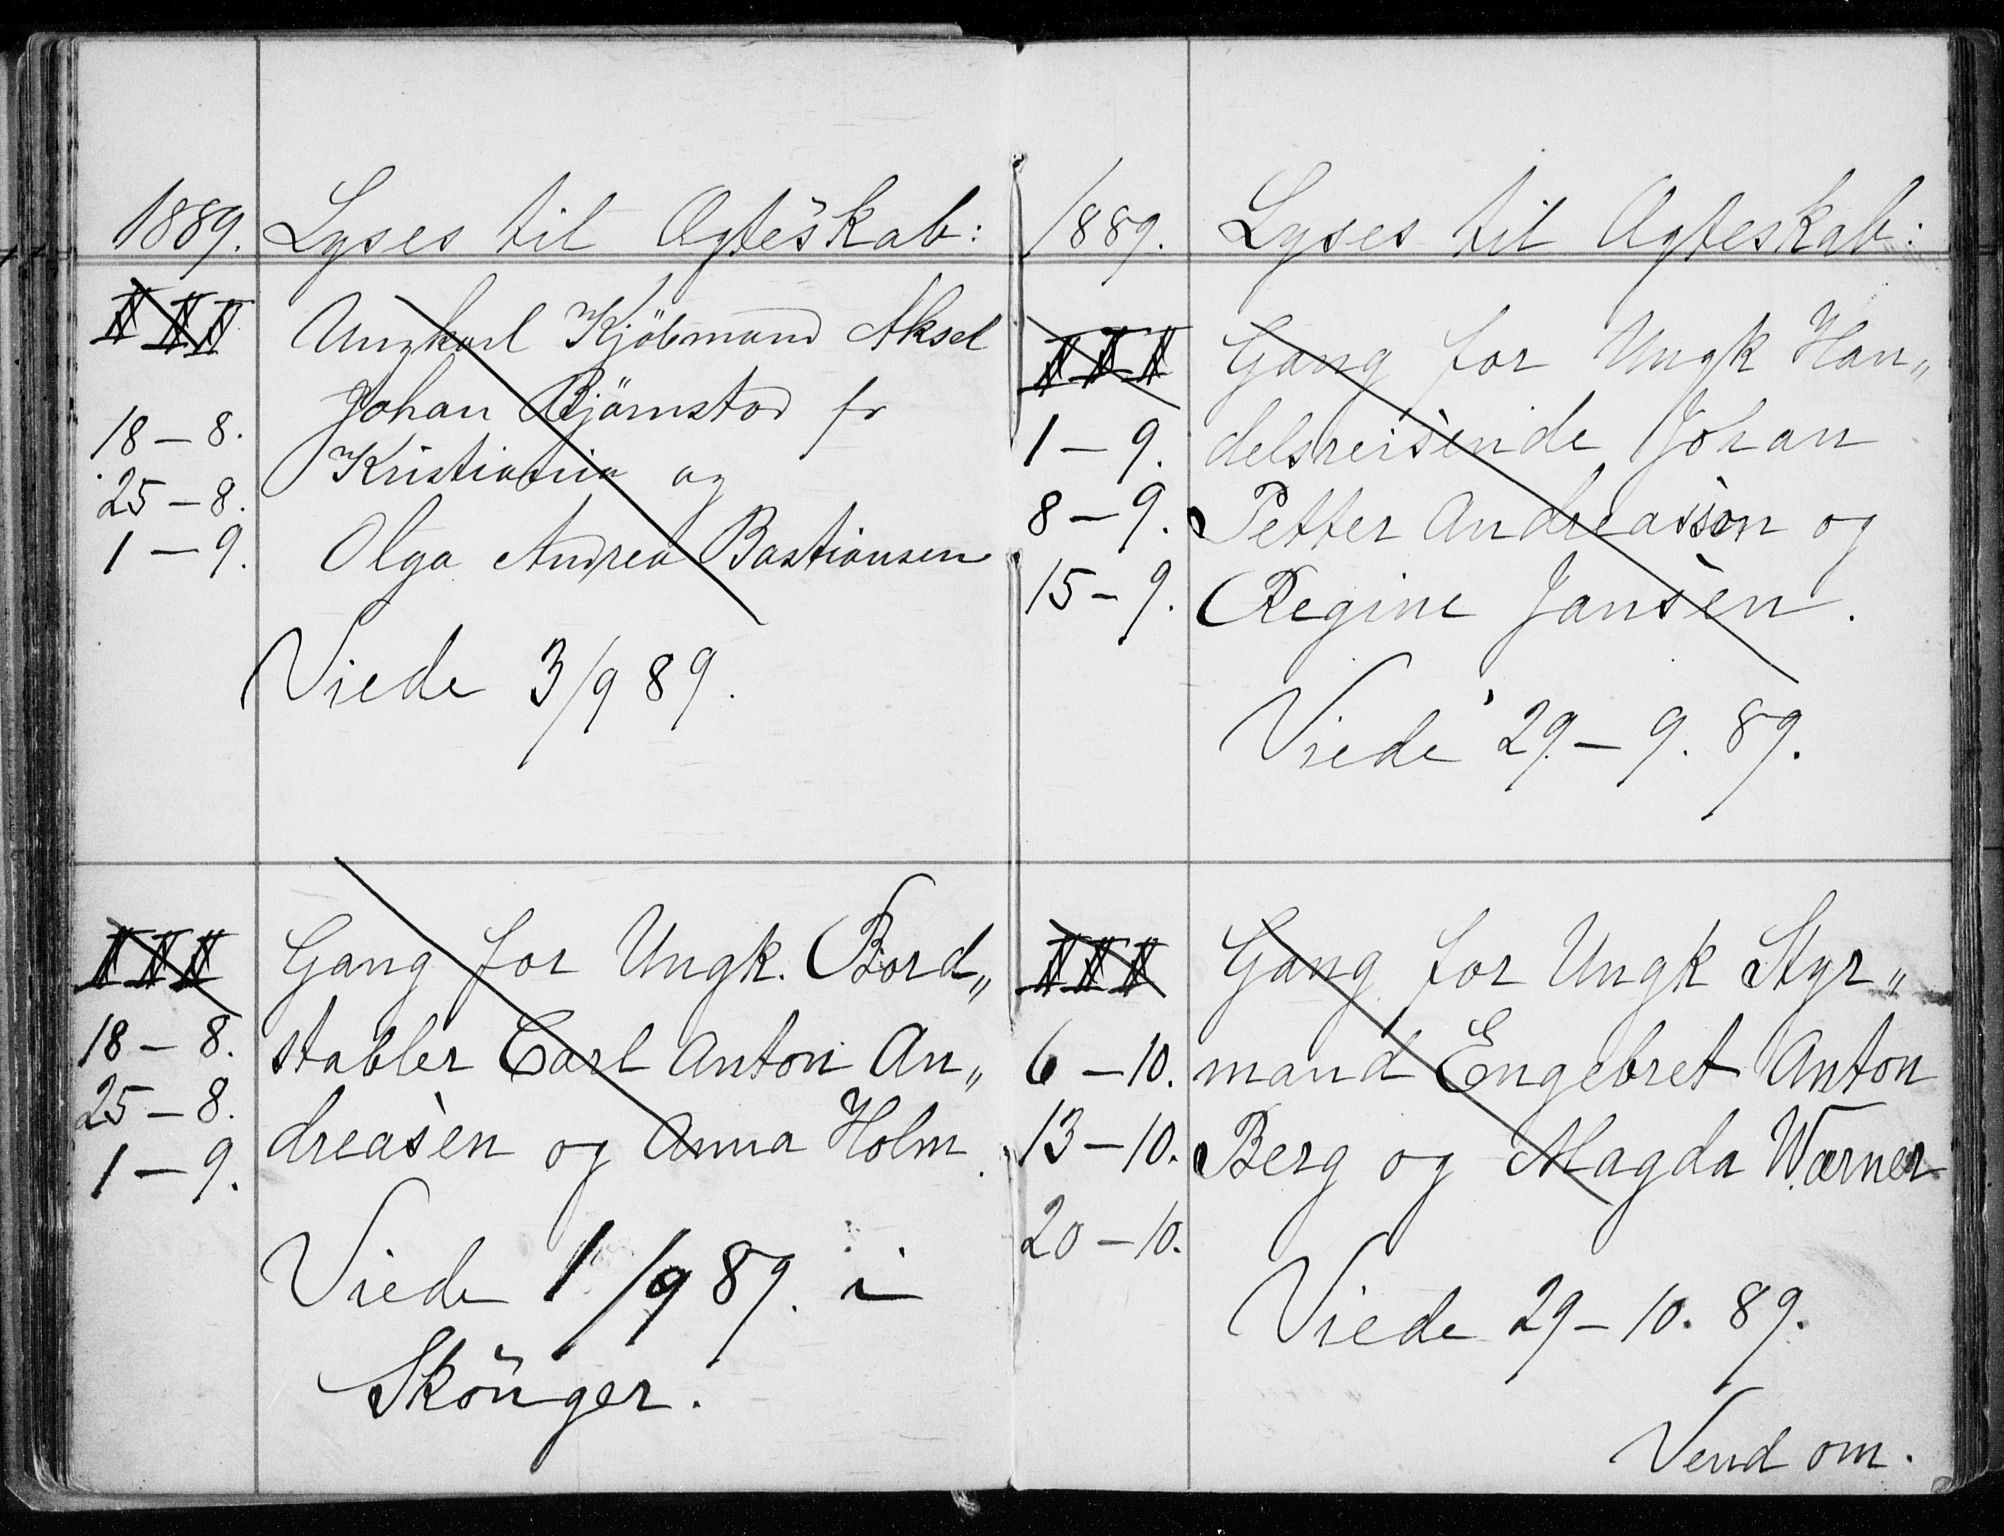 1889. Lyses til Ægteskab:
I II III
Ungkarl Kjöbmand Aksel
Johan Björnstad fr
18 – 8.
Kristiania og
25 – 8.
Olga Andrea Bastiansen
1 – 9.
Viede 3/9 89.
III
Gang for Ungk. Bord„
18 – 8.
stabler Carl Anton An„
25 – 8.
dreasen og Anna Holm.
1 – 9.
Viede 1/9 89. i
Skönger.
1889. Lyses til Ægteskab:
III
Gang for Ungk Han„
1 – 9.
delsreisende Johan
8 – 9.
Petter Andreasson og
15 – 9.
Regine Jansen.
Viede 29. – 9. 89.
III
Gang for Ungk Styr„
6 – 10.
mand Engebret Anton
13 – 10.
Berg og Magda Wærner
20 – 10.
Viede 29 – 10. 89.
Vend om.